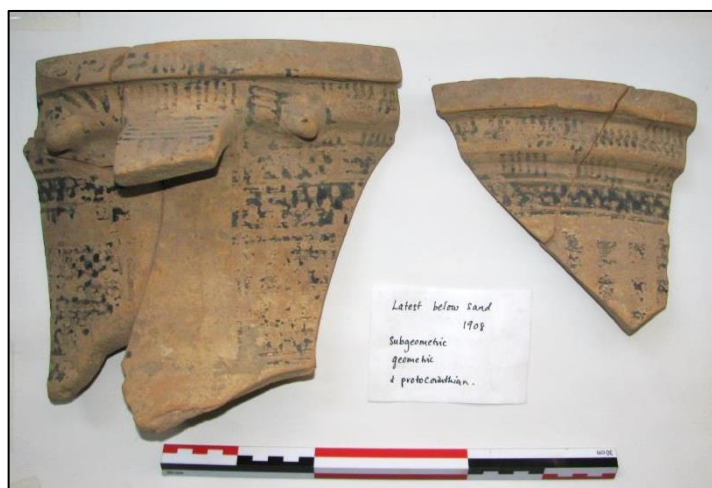 Latest below sand
1908
Subgeometric
geometric
& protocorinthian.
30cm